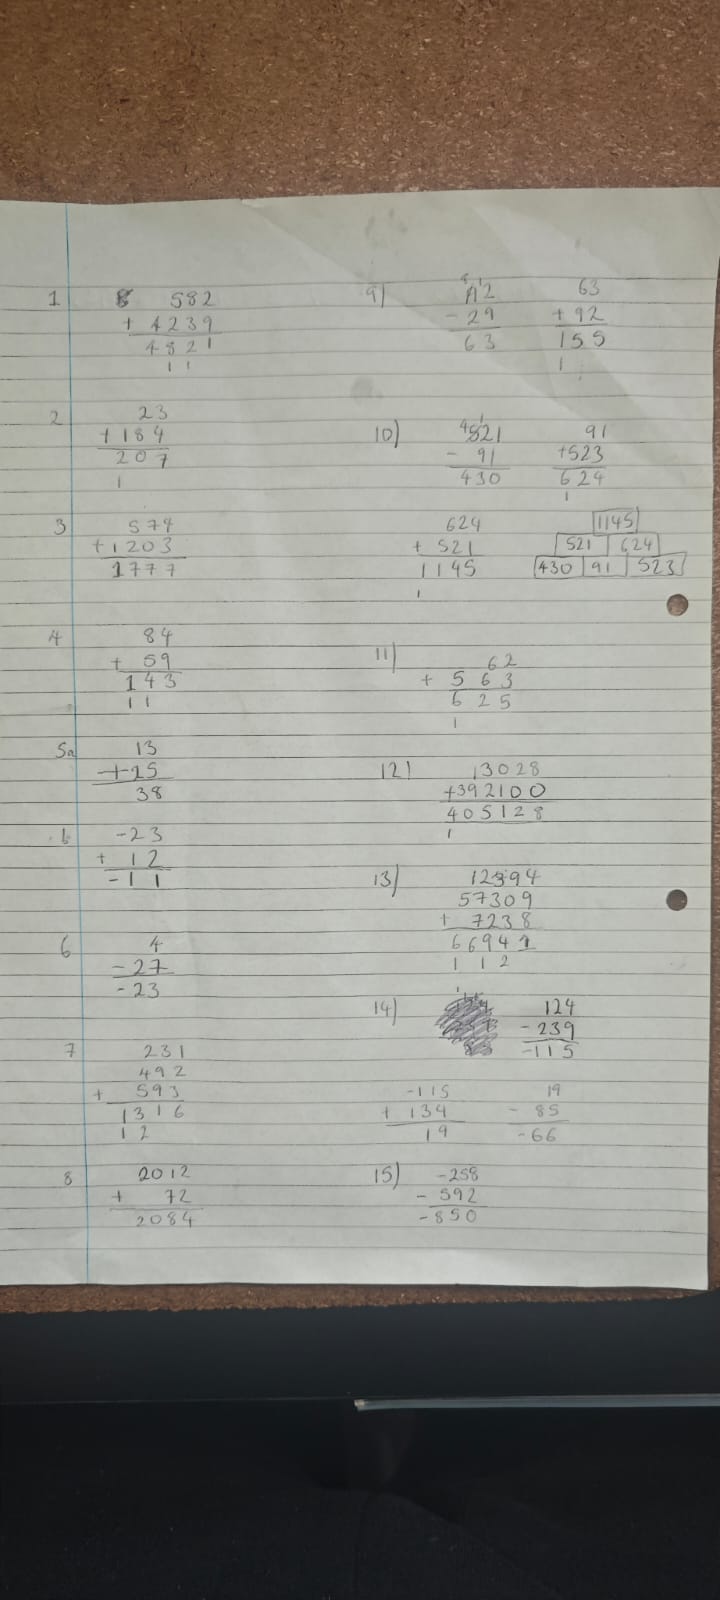 1 582
+ 4239
4821
1 1
2 23
+ 184
207
1
3 574
+ 1203
1777
4 84
+ 59
143
1 1
5a 13
+25
38
b -23
+ 12
-11
6 4
- 27
-23
7 231
492
+ 593
1316
1 2
8 2012
+ 72
2084
9) 8 1 63
92 + 92
- 29 155
63 1
10) 4 1 91
521 +523
- 91 624
430 1
624 1145
+ 521 521 624
1145 430 91 523
1
11) 62
+ 563
625
1
12) 13028
+392100
405128
1
13) 12394
57309
+ 7238
66941
1 1 2
14) 124
- 239
-115
-115 19
+ 134 - 85
19 -66
15) -258
- 592
-850